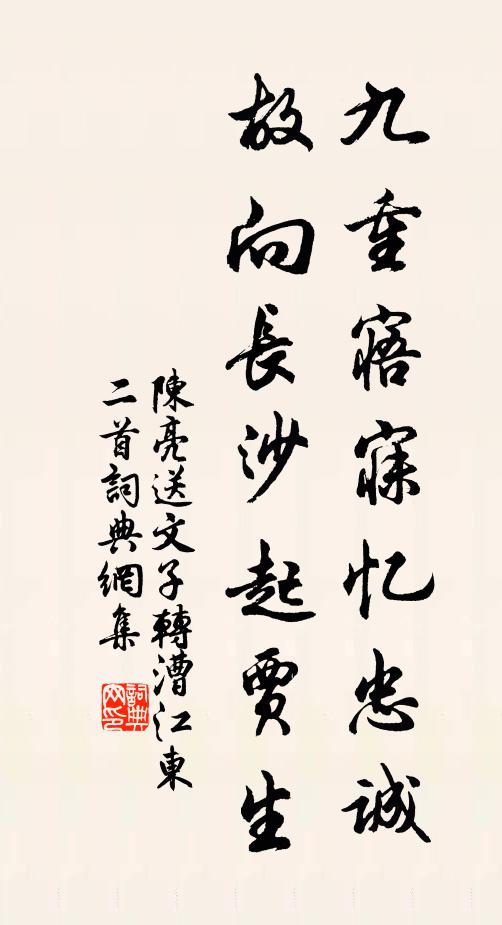 九重寤寐忆忠诚
故向長沙起賈生
陳亮送文子轉漕江東
二首詞典網集
詞典网印